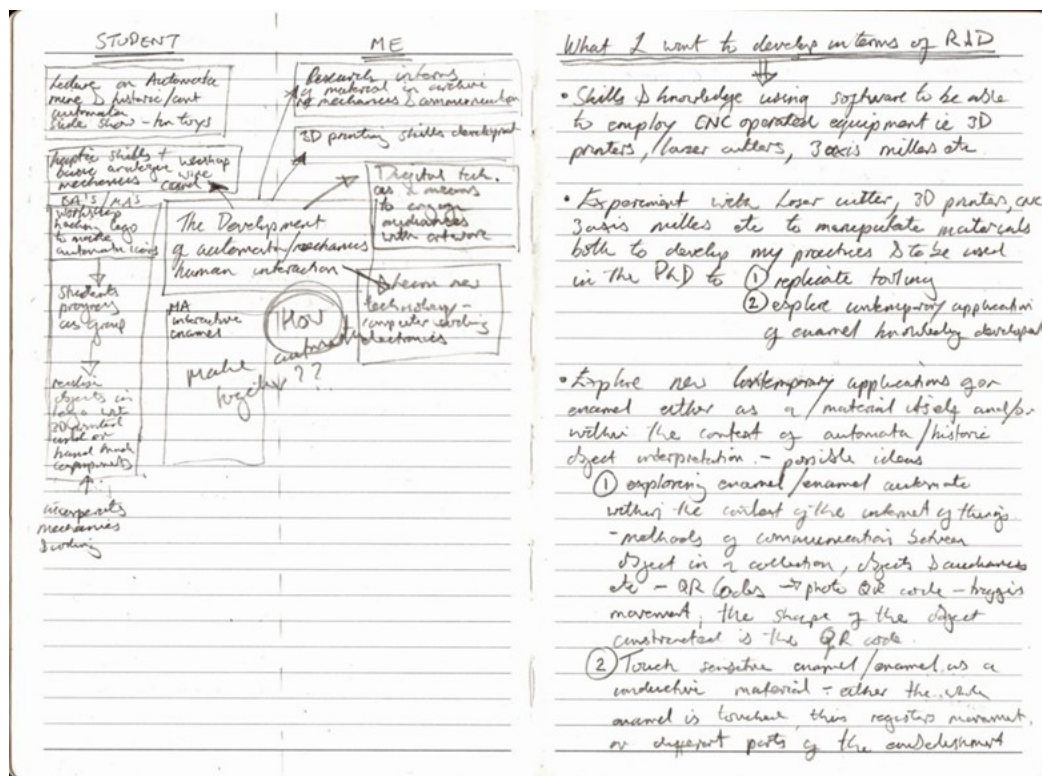 STUDENT
Lecture on Automata
more & historic/cont
automata
slide show - tin toys
haptic skills +
basic analogue
mechanisms
workshop
wire
BA's / MA's
workshop
hacking lego
to make
automata icons
students
progress
as group
realise
objects in
lego with
3D printed
and or
hand made
components
incorporate
mechanisms
& coding
ME
Research interms
of material in archive
mechanics & communication
3D printing skills development
Digital tech.
as a means
to engage
audiences
with artwork
The Development
of automata/mechanisms
human interaction
learn new
technology -
computer coding
electronics
MA
interactive
enamel
HOW
automata
??
make
together
What I want to develop in terms of R&D
• Skills & knowledge using software to be able
to employ CNC operated equipment ie 3D
printers, lazer cutters, 3 axis millers etc
• Experiment with laser cutter, 3D printers, cnc
3 axis millers etc to manipulate materials
both to develop my practices & to be used
in the PhD to ① replicate tooling
② explore contemporary application
of enamel knowledge
• Explore new contemporary applications for
enamel either as a / material itself and/or
within the context of automata / historic
object interpretation. - possible ideas
① exploring enamel/enamel automata
within the context of the internet of things
- methods of communication between
object in a collection, objects & audiences
etc - QR Codes → photo QR code - triggers
movement, the shape of the object
constructed is the QR code.
② Touch sensitive enamel/enamel as a
conductive material - either the whole
enamel is touched, this registers movement.
or different parts of the embellishment